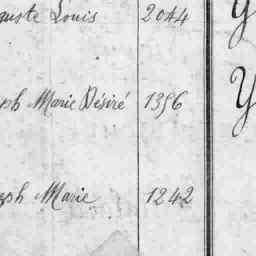 guste Louis 2044 Y
eph Marie Désiré 1356 Y
eph Marie 1242